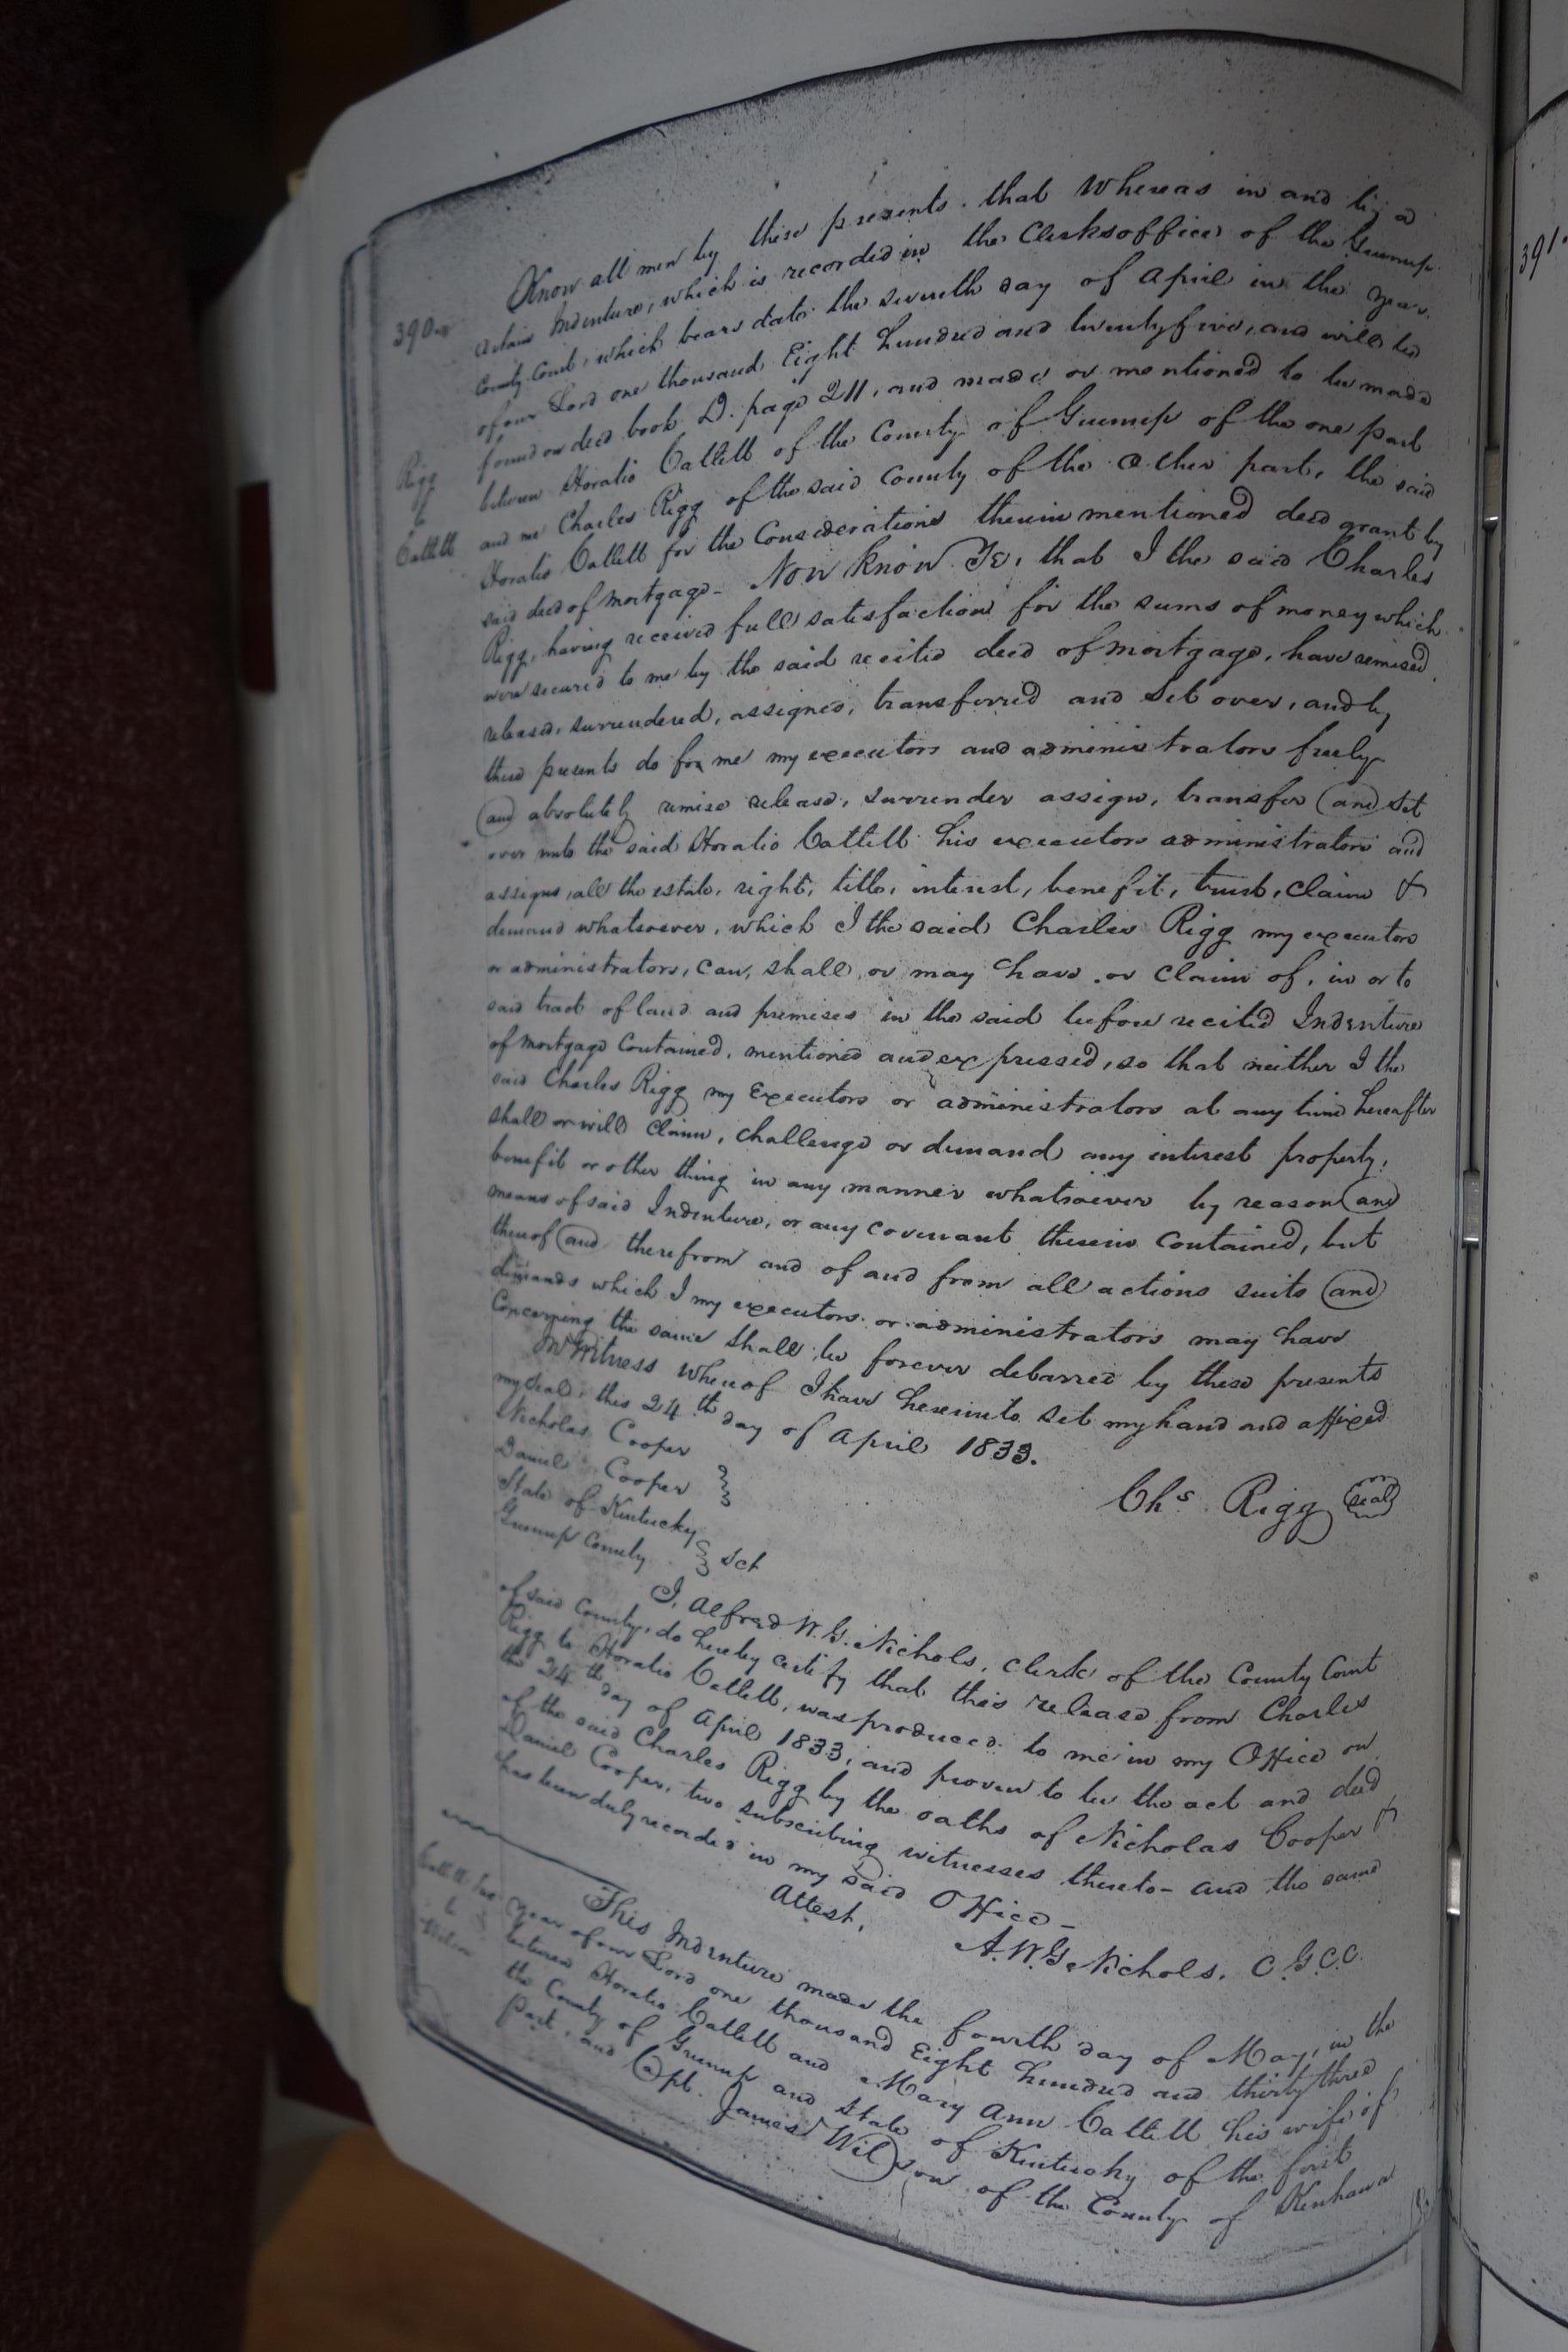 390
391
Know all men by these presents. that Whereas in and by a
certain Indenture, which is recorded in the Clerksoffice of the Greenup
County Court, which bears date the seventh day of April in the year
of our Lord one thousand Eight hundred and twentyfive, and will be
found on deed book D. page 211, and made or mentioned to be made
Rigg
to
Catlett
between Horatio Catlett of the County of Greenup of the one part
and me Charles Rigg of the said County of the other part, the said
Horatio Catlett for the Considerations therein mentioned deed grant by
said deed of mortgage - Now know Ye, that I the said Charles
Rigg, having received full satisfaction for the sums of money which
were secured to me by the said recited deed of mortgage, have remised,
released, surrendered, assigned, transferred and set over, and by
these presents do for me my executors and administrators freely
and absolutely remise release, surrender assign, transfer and set
over unto the said Horatio Catlett his executors administrators and
assigns, all the estate, right, title, interest, benefit, trust, claim &
demand whatsoever, which I the said Charles Rigg my executors
or administrators, can, shall, or may have, or claim of, in or to
said tract of land and premises in the said before recited Indenture
of mortgage Contained, mentioned and expressed, so that neither I the
said Charles Rigg my Executors or administrators at any time hereafter
shall or will claim, challenge or demand any interest property,
benefit or other thing in any manner whatsoever by reason and
means of said Indenture, or any covenant therein contained, but
thereof and therefrom and of and from all actions suits and
demands which I my executors or administrators may have
Concerning the same shall be forever debarred by these presents
In Witness Whereof I have hereunto set my hand and affixed
my seal, this 24th day of April 1833.
Nicholas Cooper
Daniel Cooper
Chs Rigg seal
State of Kentucky
Greenup County Sct
I, Alfred W. G. Nichols, clerk of the County Court
of said County, do hereby certify that this release from Charles
Rigg to Horatio Catlett, was produced to me in my Office on
the 24th day of April 1833, and proven to be the act and deed
of the said Charles Rigg by the oaths of Nicholas Cooper &
Daniel Cooper, two subscribing witnesses thereto - and the same
has been duly recorded in my said Office -
Attest,
A. W. G. Nichols. C. G. C. C.
This Indenture made the fourth day of May, in the
year of our Lord one thousand Eight hundred and thirty three
between Horatio Catlett and Mary Ann Catlett his wife of
the County of Greenup and State of Kentucky of the first
Part, and Capt. James Wilson of the County of Kenhawa